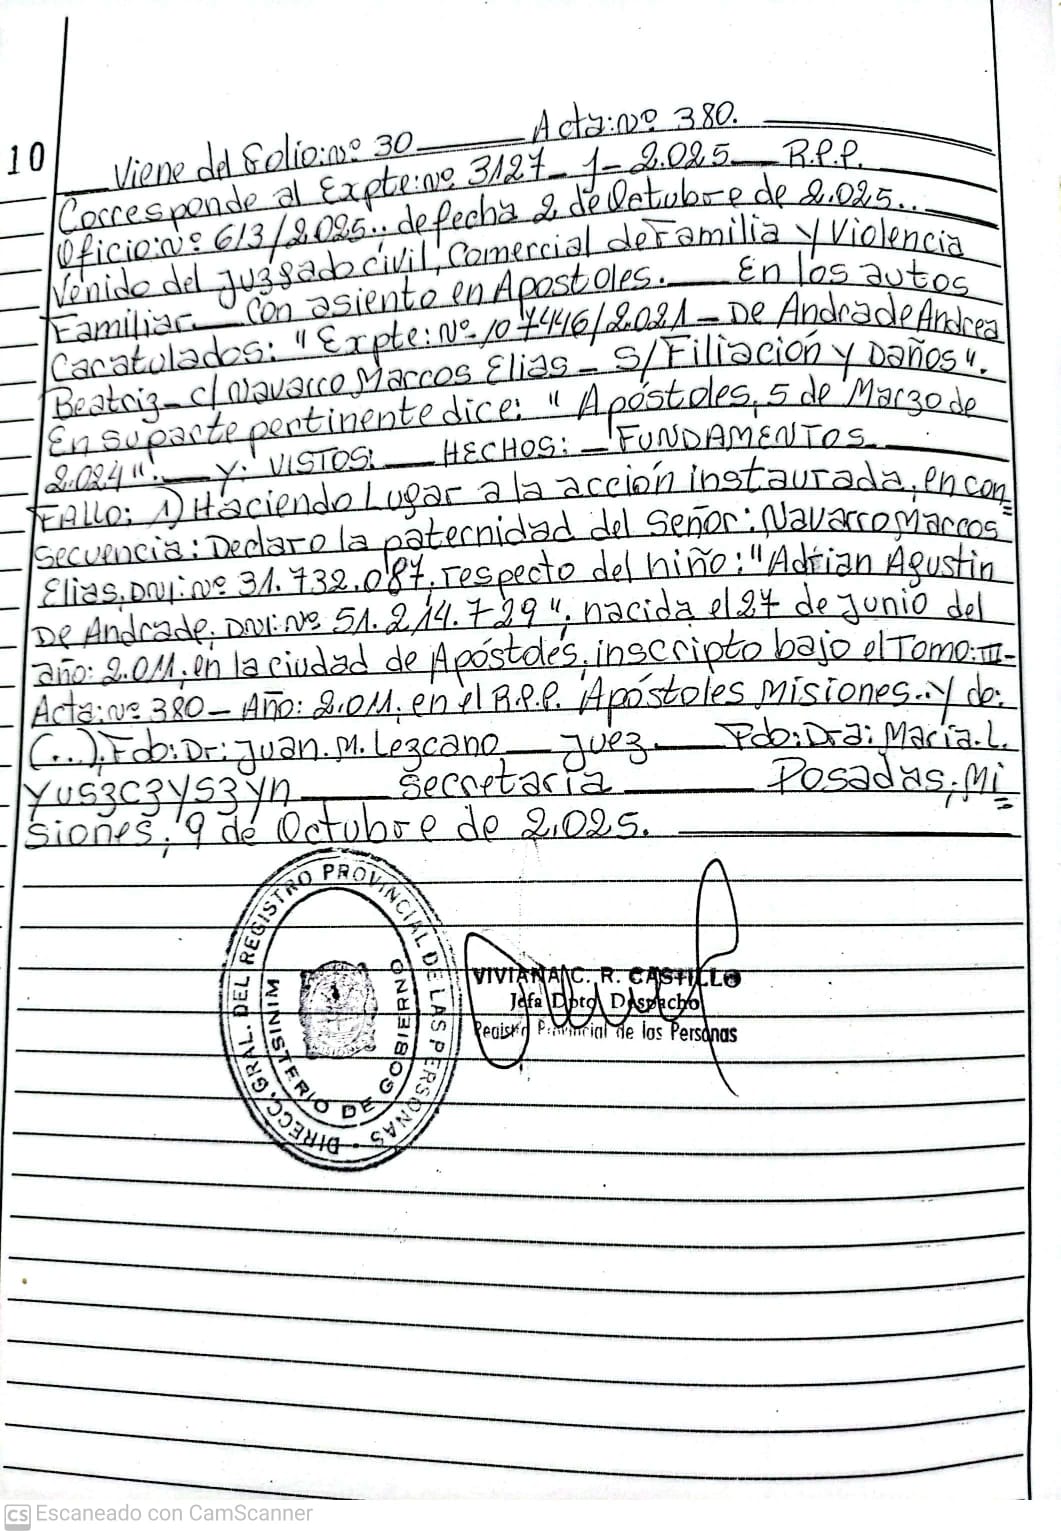 Acta: nº 380.
10
Viene del Folio: nº 30
Corresponde al Expte: nº 3127-1-2.025 R.P.P.
Oficio: Nº 613/2.025.. de fecha 2 de Octubre de 2.025..
Venido del Juzgado civil, Comercial de Familia y Violencia
Familiar. Con asiento en Apostoles. En los autos
Caratulados: "Expte: Nº 107446/2.021 - De Andrade Andrea
Beatriz - c/ Navarro Marcos Elias - S/ Filiación y Daños".
En su parte pertinente dice: "Apóstoles, 5 de Marzo de
2.024". Y: VISTOS: HECHOS: - FUNDAMENTOS
FALLO: 1) Haciendo Lugar a la acción instaurada, en con=
secuencia: Declaro la paternidad del Señor: Navarro Marcos
Elias, DNI: Nº 31.732.087, respecto del niño: "Adrian Agustin
De Andrade, DNI: Nº 51.214.729", nacida el 27 de Junio del
año: 2.011, en la ciudad de Apóstoles, inscripto bajo el Tomo: III-
Acta: nº 380 - Año: 2.011, en el R.P.P. Apóstoles Misiones..Y do:
(...), Fdo: Dr: Juan. M. Lezcano Juez. Fdo: Dra: María. L.
Yuszczyszyn Secretaria Posadas, Mi=
siones, 9 de Octubre de 2.025.
DIRECC. GRAL. DEL REGISTRO PROVINCIAL DE LAS PERSONAS
MINISTERIO DE GOBIERNO
VIVIANA C. R. CASTILLO
Jefa Dpto Despacho
Registro Provincial de las Personas
CS Escaneado con CamScanner